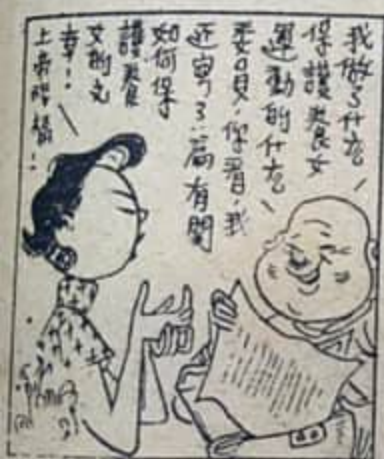 我做了什么
保護養女
運動的什么
委員，你看，我
近寫了一篇有關
如何保
護養
女的文
章！
上帝賜福！